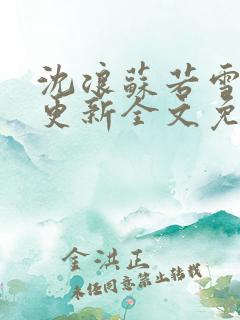 沈浪蘇若雪
更新全文免
金洪正
未经同意禁止转载